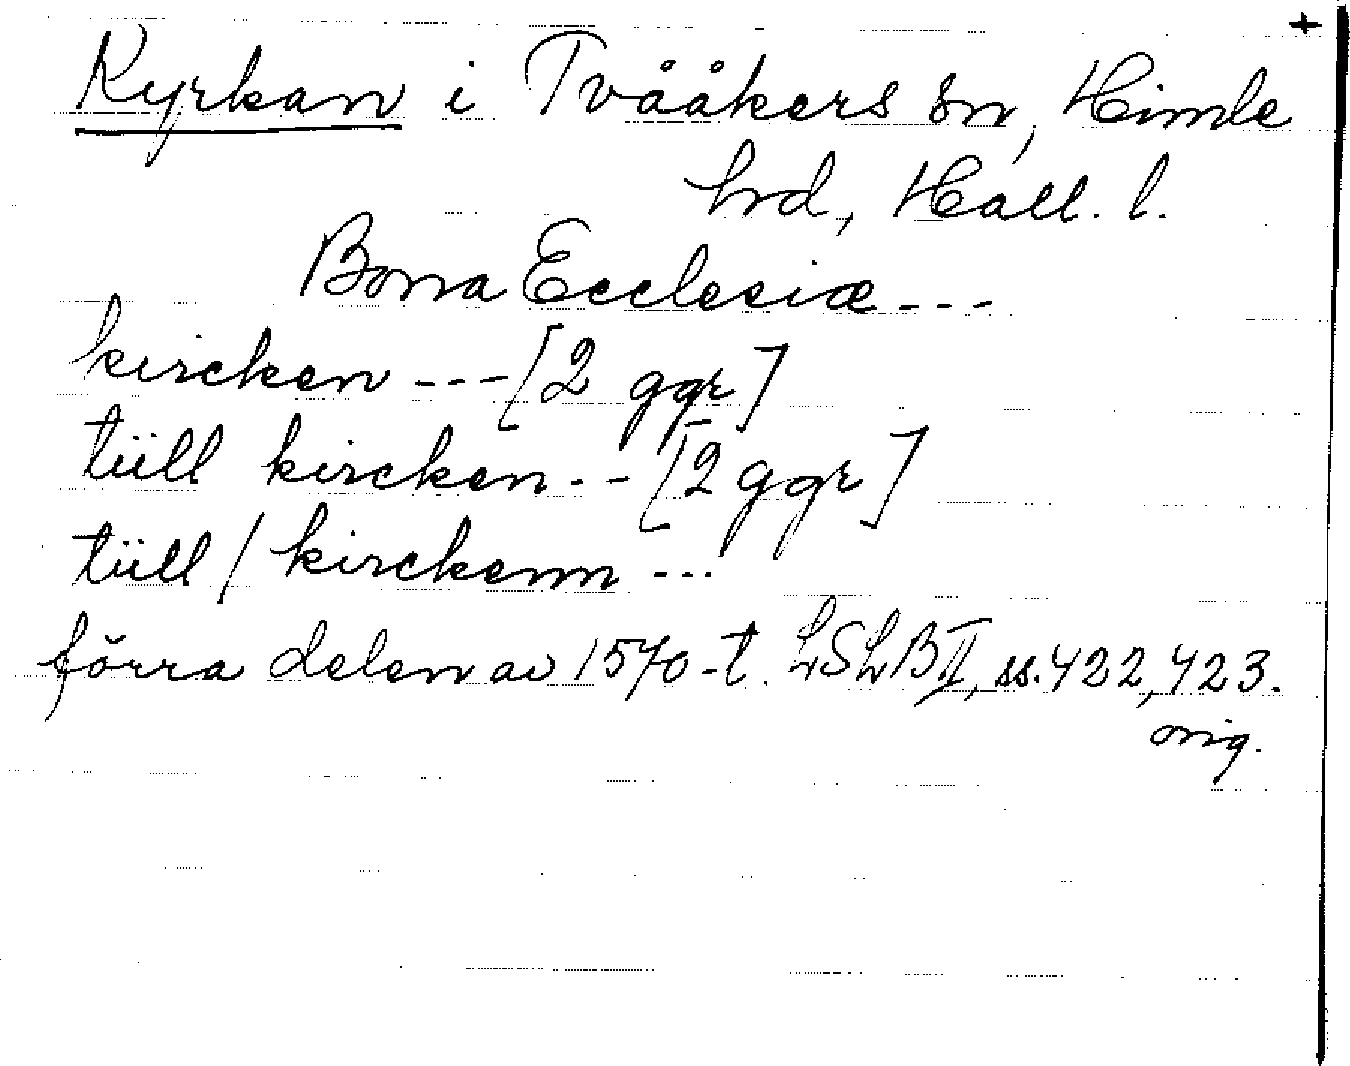 +
Kyrkan i Tvååkers sn, Himle
hrd, Hall. l.
Bona Ecclesiæ ---
kircken --- [2 ggr]
tüll kircken -- [2 ggr]
tüll / kirckenn ...
förra delen av 1570-t. LSLB II, ss. 422, 423.
orig.